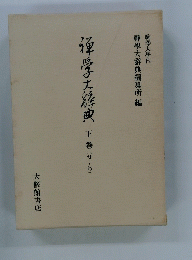 駒澤大學内
禪學大辭典編纂所 編
禪學大辭典
下巻
大修館書店